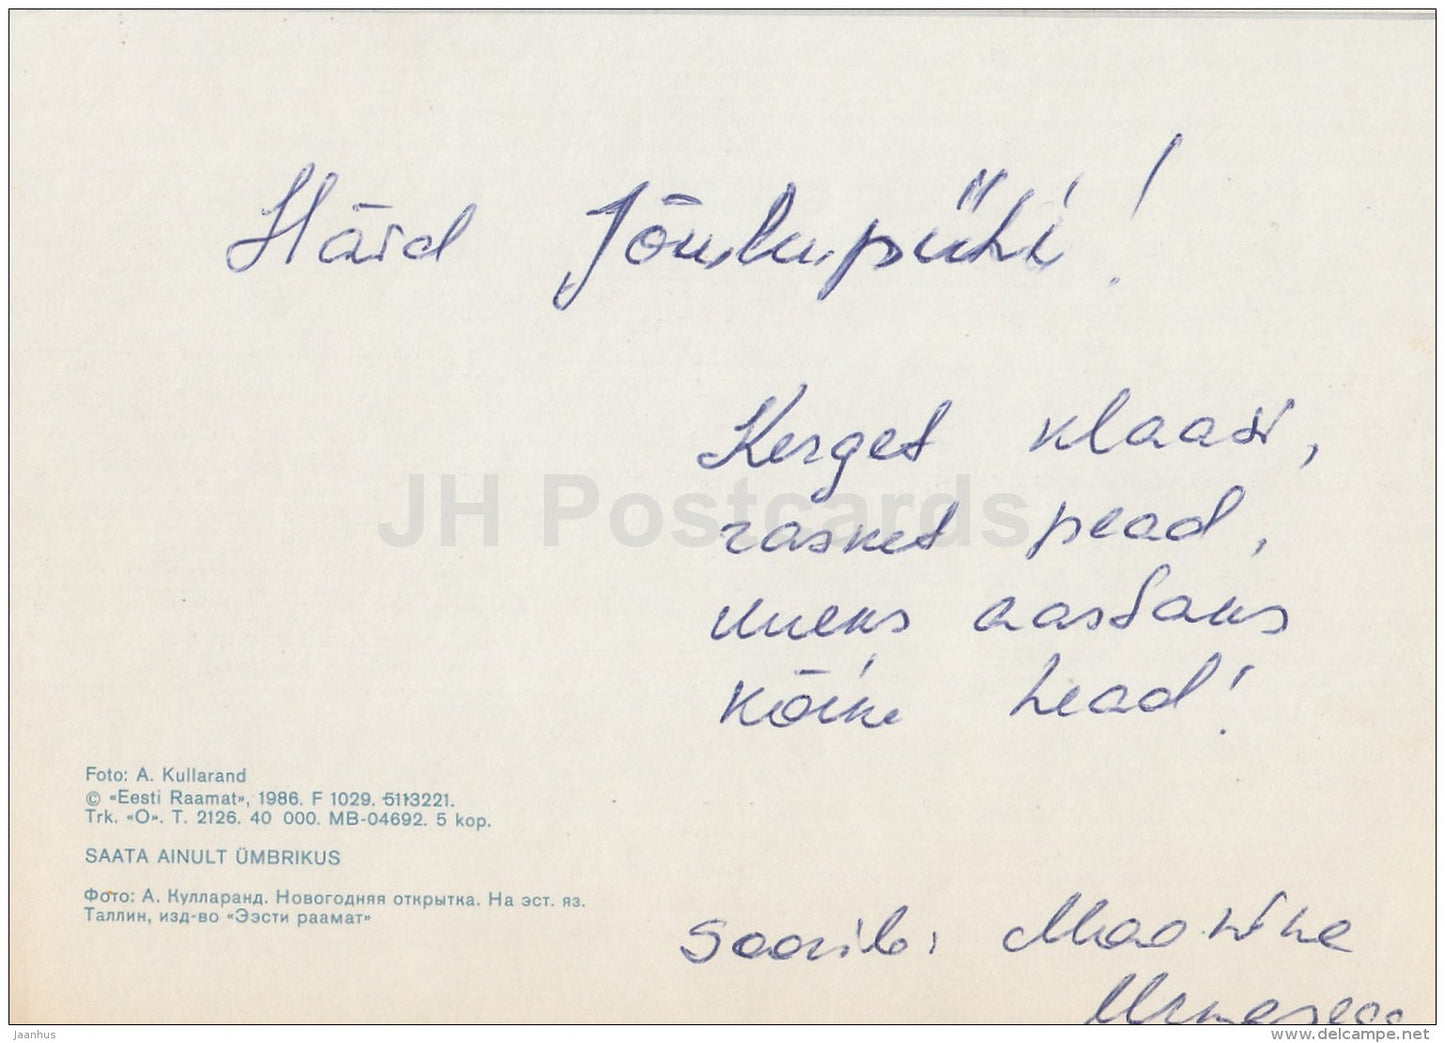 Häid Jõulupühi!
Kerget klaasi,
rasket pead,
uueks aastaks
kõike head!
JH Postcards
Foto: A. Kullarand
© «Eesti Raamat», 1986. F 1029. 5113221.
Trk. «O». T. 2126. 40 000. MB-04692. 5 kop.
SAATA AINULT ÜMBRIKUS
Фото: А. Кулларанд. Новогодняя открытка. На эст. яз.
Таллин, изд-во «Ээсти раамат»
Soovib:
jaanhus
www.delcampe.net